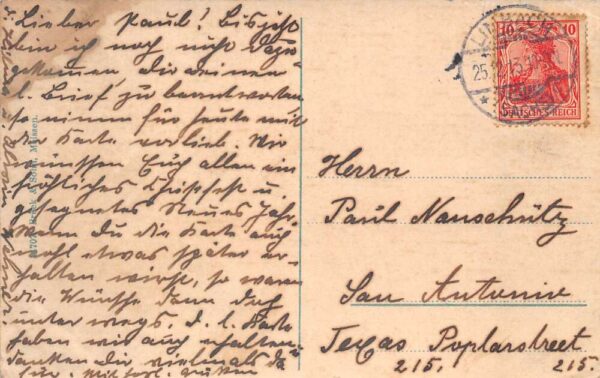 Lieber Paul! Bis jetzt
bin ich noch nicht dazu
gekommen, dir deinen
l. Brief zu beantworten
so nimm für heute mit
der Karte vorlieb. Wir
wünschen Euch allen ein
fröhliches Christfest u
gesegnetes Neues Jahr.
Wenn du die Karte auch
wohl etwas später er-
halten wirst, so waren
die Wünsche dann doch
unter wegs. d. l. Karte
haben wir auch erhalten.
danken dir vielmals da
für. Mit herzl. Grüßen
DEUTSCHES REICH
10 10
Herrn
Paul Nauschütz
San Antonio
Texas Poplarstreet
215. 215.